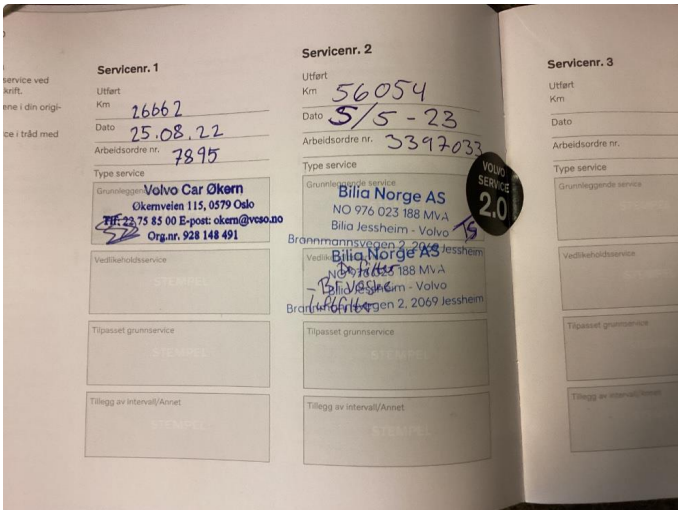 service ved
krift.
ene i din origi-
ce i tråd med
Servicenr. 1
Utført
Km 26662
Dato 25.08.22
Arbeidsordre nr. 7895
Type service
Grunnleggen
Volvo Car Økern
Økernveien 115, 0579 Oslo
Tlf: 22 75 85 00 E-post: okern@vcso.no
Org.nr. 928 148 491
Vedlikeholdsservice
STEMPEL
Tilpasset grunnservice
STEMPEL
Tillegg av intervall/Annet
STEMPEL
Servicenr. 2
Utført
Km 56054
Dato 5/5-23
Arbeidsordre nr. 3397033
Type service
Grunnleggende service
Bilia Norge AS
NO 976 023 188 MVA
Bilia Jessheim - Volvo
TS
Brannmannsvegen 2, 2069 Jessheim
VOLVO
SERVICE
2.0
Vedlik
Bilia Norge AS
NO 976 023 188 MVA
Bilia Jessheim - Volvo
- Br.væske
Luftfilter
Brannmannsvegen 2, 2069 Jessheim
Tilpasset grunnservice
STEMPEL
Tillegg av intervall/Annet
STEMPEL
Servicenr. 3
Utført
Km
Dato
Arbeidsordre nr.
Type service
Grunnleggende service
Vedlikeholdsservice
Tilpasset grunnservice
Tillegg av intervall/Annet